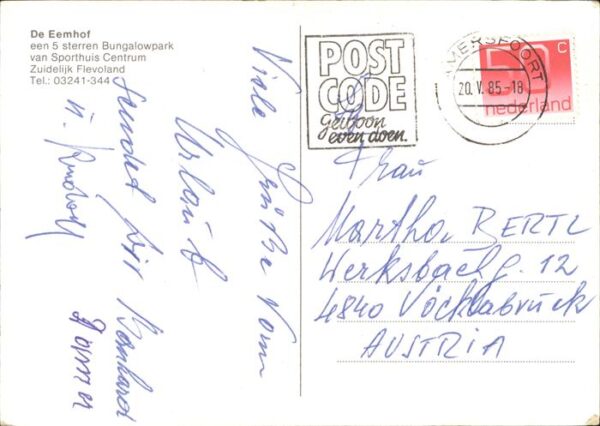 De Eemhof
een 5 sterren Bungalowpark
van Sporthuis Centrum
Zuidelijk Flevoland
Tel.: 03241-344
POST
CODE
Gewoon
even doen.
AMERSFOORT
20. V. 85.-18
50 C
nederland
Viele Grüße vom
Urlaub
sendet Dir
u.
Frau
Martha BERTL
Werksbachg. 12
4840 Vöcklabruck
AUSTRIA